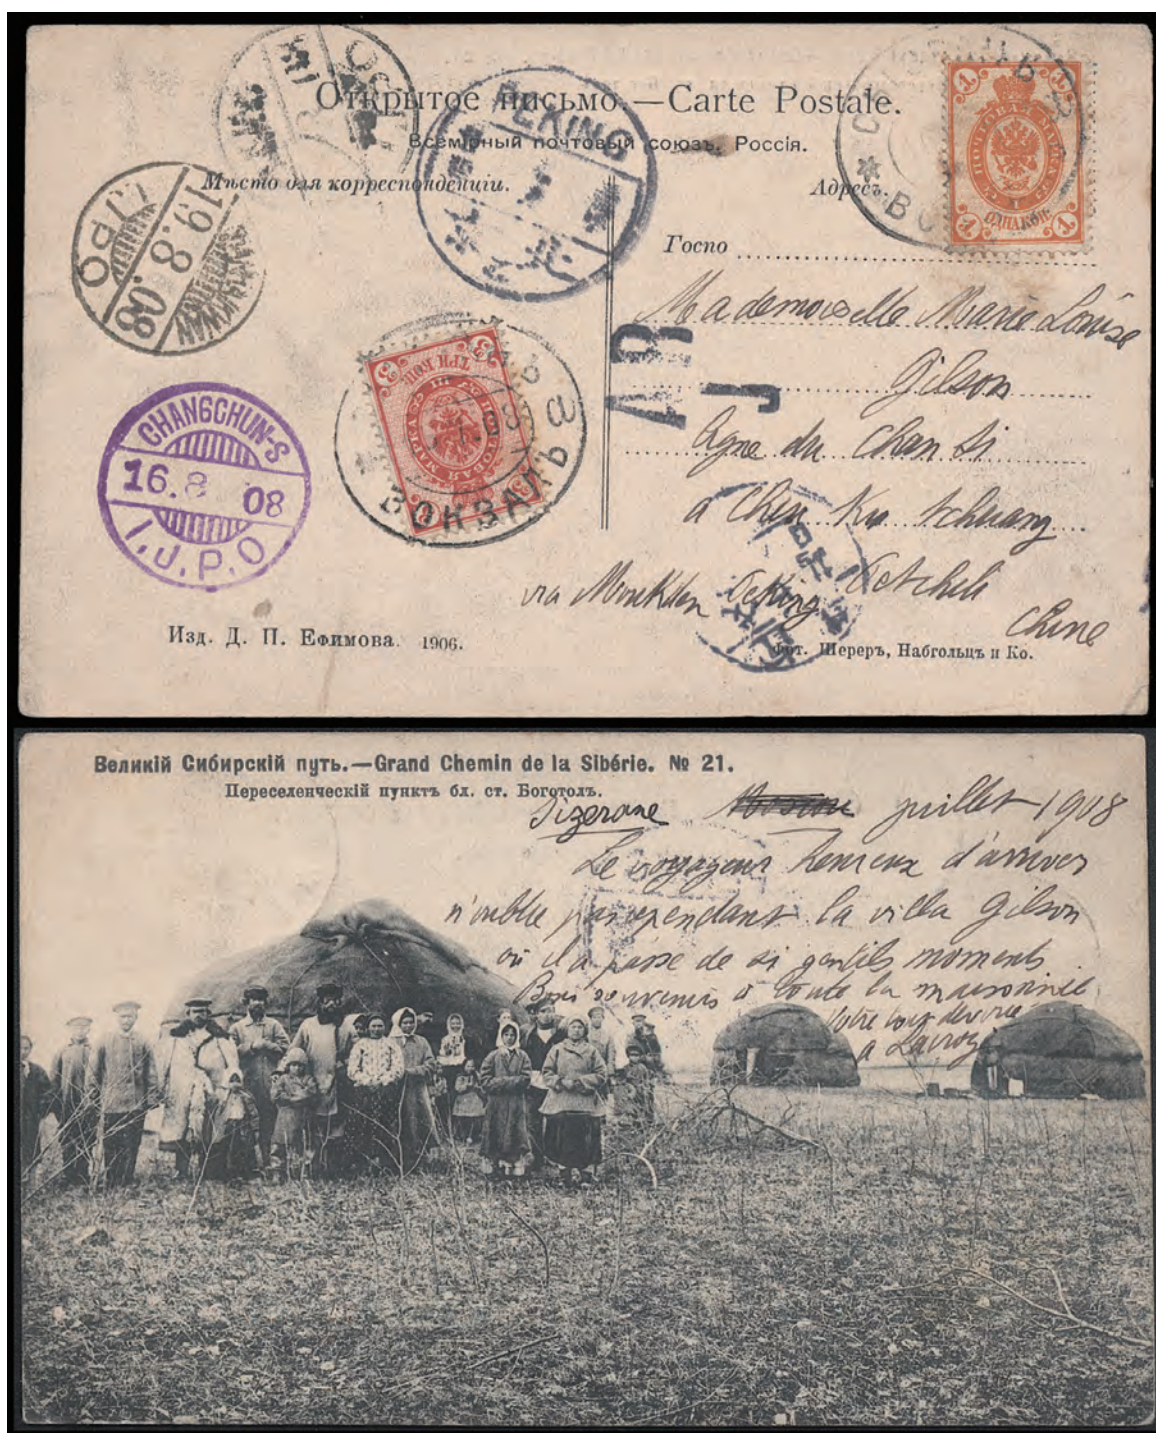 Открытое письмо.—Carte Postale.
Всемірный почтовый союзъ. Россія.
Мѣсто для корреспонденціи.
Адресъ.
PEKING
1
ПОЧТОВАЯ МАРКА
ОДНА КОП.
19.8.08
I.J.P.O
Госпо
Mademoiselle Marie Louise
Gilson
Agne du Chan Si
à Chen Ku tchuang
via Moukden Peking Petcheli
Chine
A R
J
3
ТРИ КОП.
ВОКЗАЛЪ
CHANGCHUN-S
16.8 08
I.J.P.O
Изд. Д. П. Ефимова. 1906.
Фот. Шереръ, Набгольцъ и Ко.
Великій Сибирскій путь.—Grand Chemin de la Sibérie. № 21.
Переселенческій пунктъ бл. ст. Боготолъ.
juillet 1908
Le voyageur heureux d'arriver
n'oublie pas cependant la villa Gilson
où il a passé de si gentils moments
Bons souvenirs à toute la maisonnée
Votre